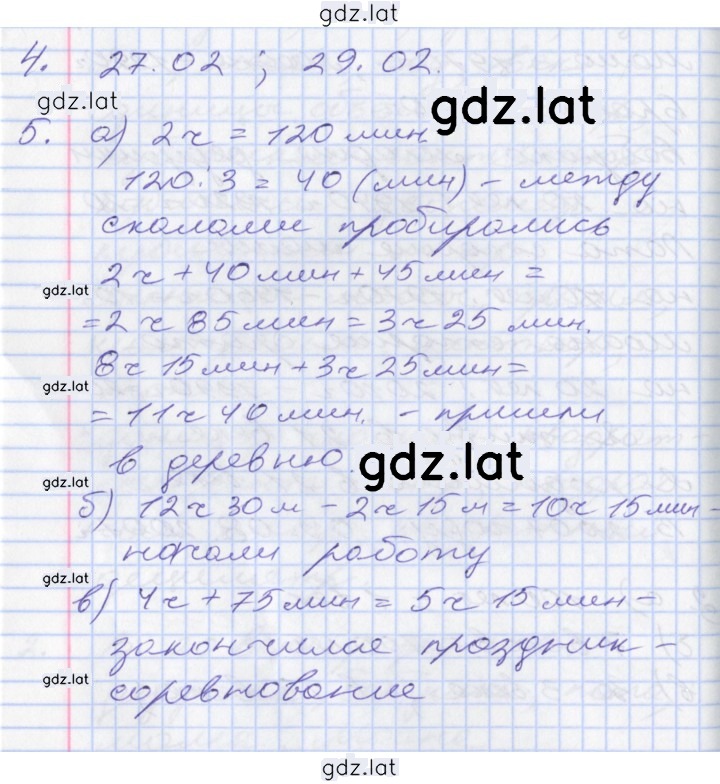 gdz.lat
4. 27.02 ; 29.02.
gdz.lat
gdz.lat
5. а) 2ч = 120 мин
120:3 = 40 (мин) - между
скалами пробирались
2ч + 40 мин + 45 мин =
gdz.lat
= 2ч 85 мин = 3ч 25 мин.
8ч 15 мин + 3ч 25 мин =
gdz.lat
= 11ч 40 мин. - пришли
в деревню
gdz.lat
б) 12ч 30м - 2ч 15м = 10ч 15мин -
начали работу
gdz.lat
в) 4ч + 75 мин = 5ч 15 мин -
закончилае праздник -
gdz.lat
соревнование
gdz.lat